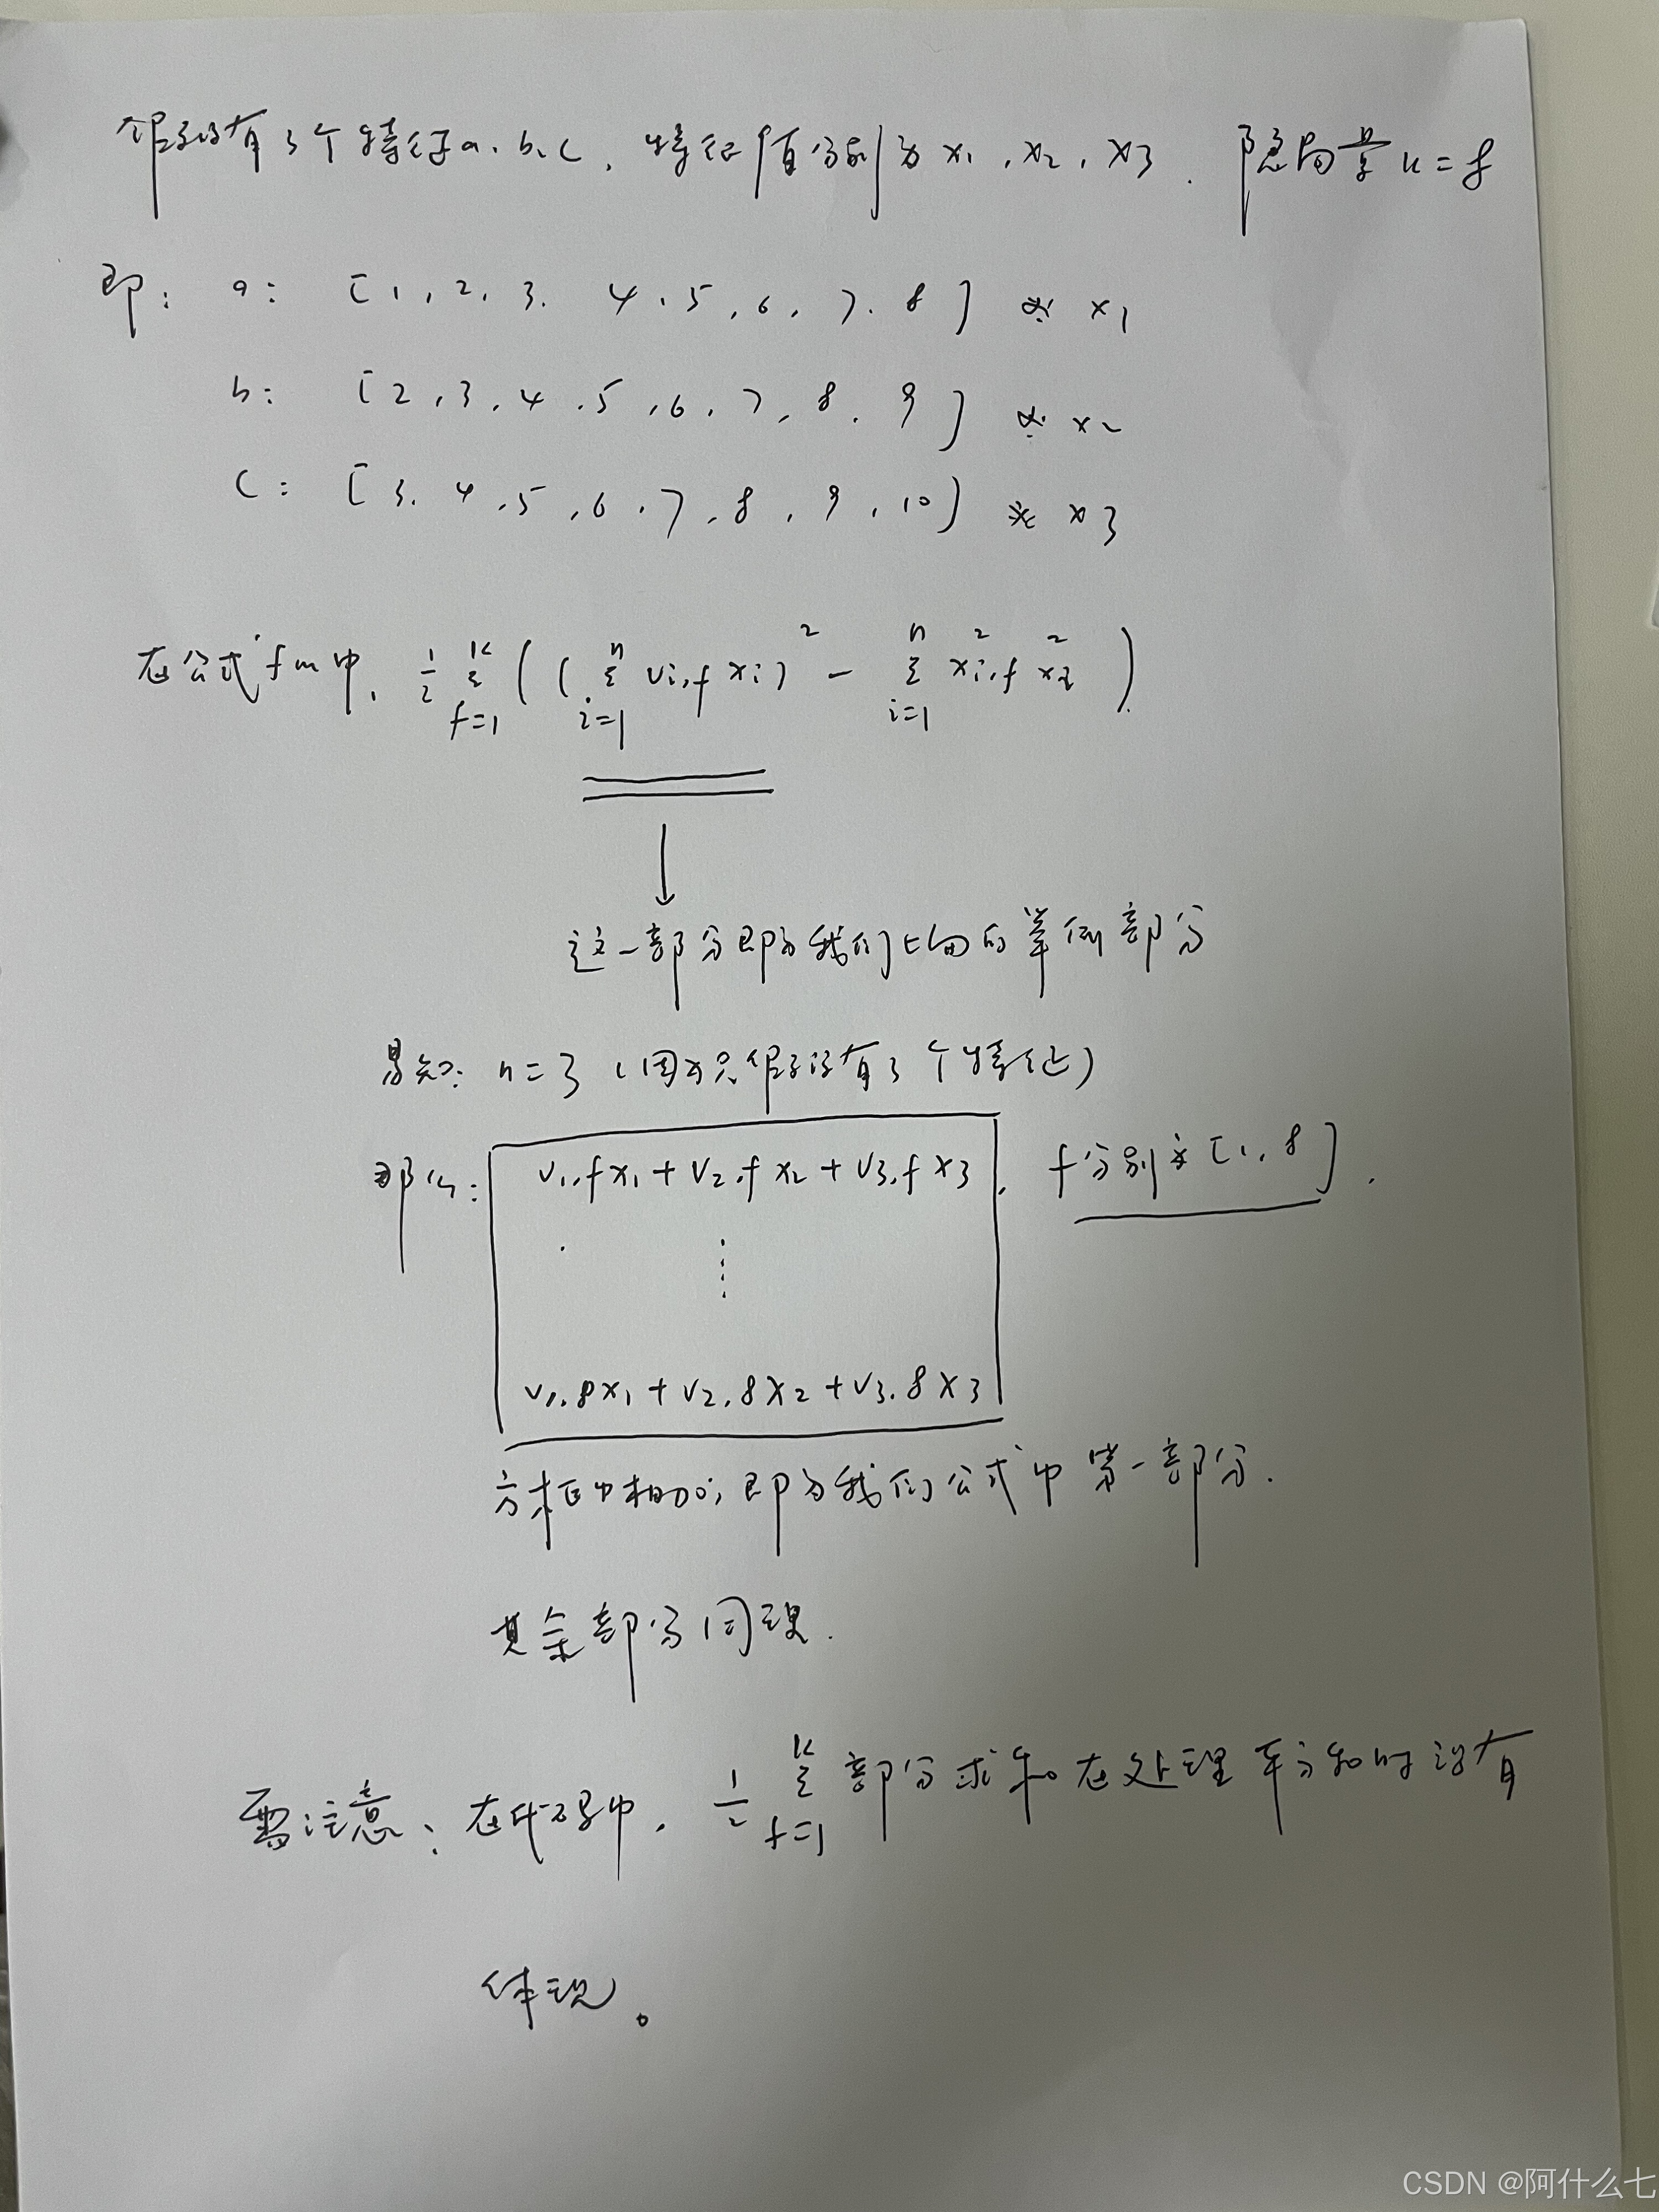 假设有3个特征a、b、c，特征值分别为x₁，x₂，x₃．隐向量k=8
即：a：[1，2，3．4，5，6，7．8] * x₁
b：[2，3，4，5，6，7，8，9] * x₂
c：[3．4，5，6，7，8，9，10] * x₃
在公式fm中，1/2 Σ_{f=1}^{k} ( (Σ_{i=1}^{n} vi,f xi)² − Σ_{i=1}^{n} x²i,f x²i )
这一部分即为我们上面的举例部分
易知：n=3（因为只假设有3个特征）
那么：v₁,f x₁ + v₂,f x₂ + v₃,f x₃，f分别为[1，8]．
⋮
v₁,8x₁ + v₂,8x₂ + v₃,8x₃
方框中相加，即为我们公式中第一部分．
其余部分同理．
需注意：在代码中，1/2 Σ_{f=1}^{k} 部分求和在处理平方和时没有
体现。
CSDN @阿什么七